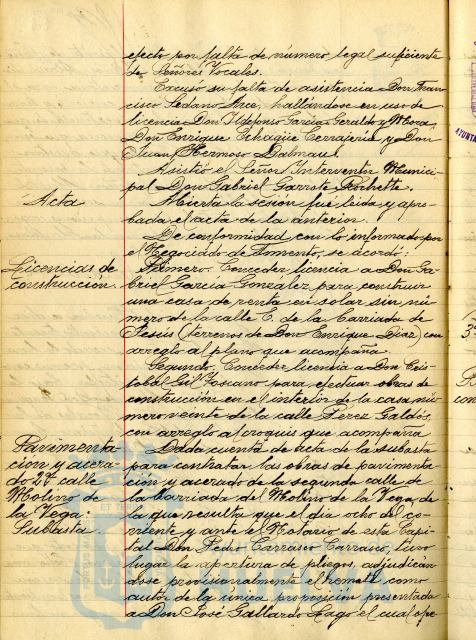 efecto por falta de número legal suficiente
de Señores Vocales.
Excusó su falta de asistencia Don Fran
cisco Sedano Arce, hallándose en uso de
licencia Don Ildefonso García Geraldo y Mora,
Don Enrique Echagüe Cerrajería y Don
Juan Hermoso Dalmau.
Asistió el Señor Interventor Munici
pal Don Gabriel Garrote Rochette.
Acta
Abierta la sesión fue leída y apro-
bada el acta de la anterior.
De conformidad con lo informado por
el Negociado de Fomento, se acordó:
Licencias de
construcción.
Primero. Conceder licencia a Don Ga-
briel García González para construir
una casa de renta en solar sin nú
mero de la calle C. de la Barriada de
Jesús (terrenos de Don Enrique Díaz) con
arreglo al plano que acompaña.
Segundo. Conceder licencia a Don Cris-
tóbal Gil Toscano para efectuar obras de
construcción en el interior de la casa nú
mero veinte de la calle Pérez Galdós,
con arreglo al croquis que acompaña
Pavimenta
ción y acera-
do 2ª calle
Molino de
la Vega:
Subasta.
Dada cuenta de acta de la subasta
para contratar las obras de pavimenta-
ción y acerado de la segunda calle de
la barriada del Molino de la Vega, de
la que resulta que el día ocho del co-
rriente y ante el Notario de esta Capi-
tal Don Pedro Carrasco Carrasco, tuvo
lugar la apertura de pliegos, adjudicán
dose provisionalmente el remate como
autor de la única proposición presentada
a Don José Gallardo Lago el cual ofre